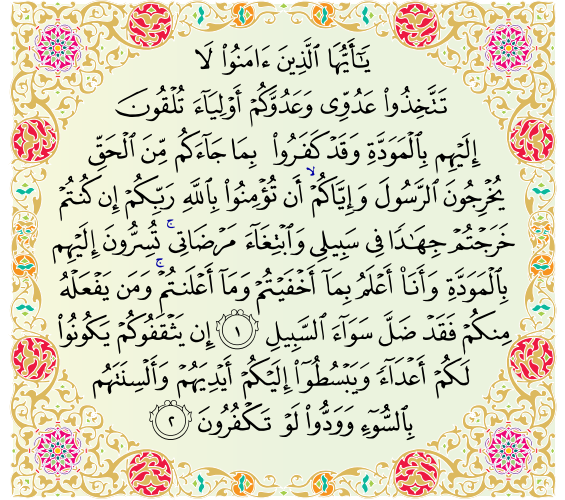 يَٰٓأَيُّهَا ٱلَّذِينَ ءَامَنُوا۟ لَا
تَتَّخِذُوا۟ عَدُوِّى وَعَدُوَّكُمْ أَوْلِيَآءَ تُلْقُونَ
إِلَيْهِم بِٱلْمَوَدَّةِ وَقَدْ كَفَرُوا۟ بِمَا جَآءَكُم مِّنَ ٱلْحَقِّ
يُخْرِجُونَ ٱلرَّسُولَ وَإِيَّاكُمْ ۙ أَن تُؤْمِنُوا۟ بِٱللَّهِ رَبِّكُمْ إِن كُنتُمْ
خَرَجْتُمْ جِهَٰدًا فِى سَبِيلِى وَٱبْتِغَآءَ مَرْضَاتِى ۚ تُسِرُّونَ إِلَيْهِم
بِٱلْمَوَدَّةِ وَأَنَا۠ أَعْلَمُ بِمَآ أَخْفَيْتُمْ وَمَآ أَعْلَنتُمْ ۚ وَمَن يَفْعَلْهُ
مِنكُمْ فَقَدْ ضَلَّ سَوَآءَ ٱلسَّبِيلِ ١ إِن يَثْقَفُوكُمْ يَكُونُوا۟
لَكُمْ أَعْدَآءً وَيَبْسُطُوٓا۟ إِلَيْكُمْ أَيْدِيَهُمْ وَأَلْسِنَتَهُم
بِٱلسُّوٓءِ وَوَدُّوا۟ لَوْ تَكْفُرُونَ ٢